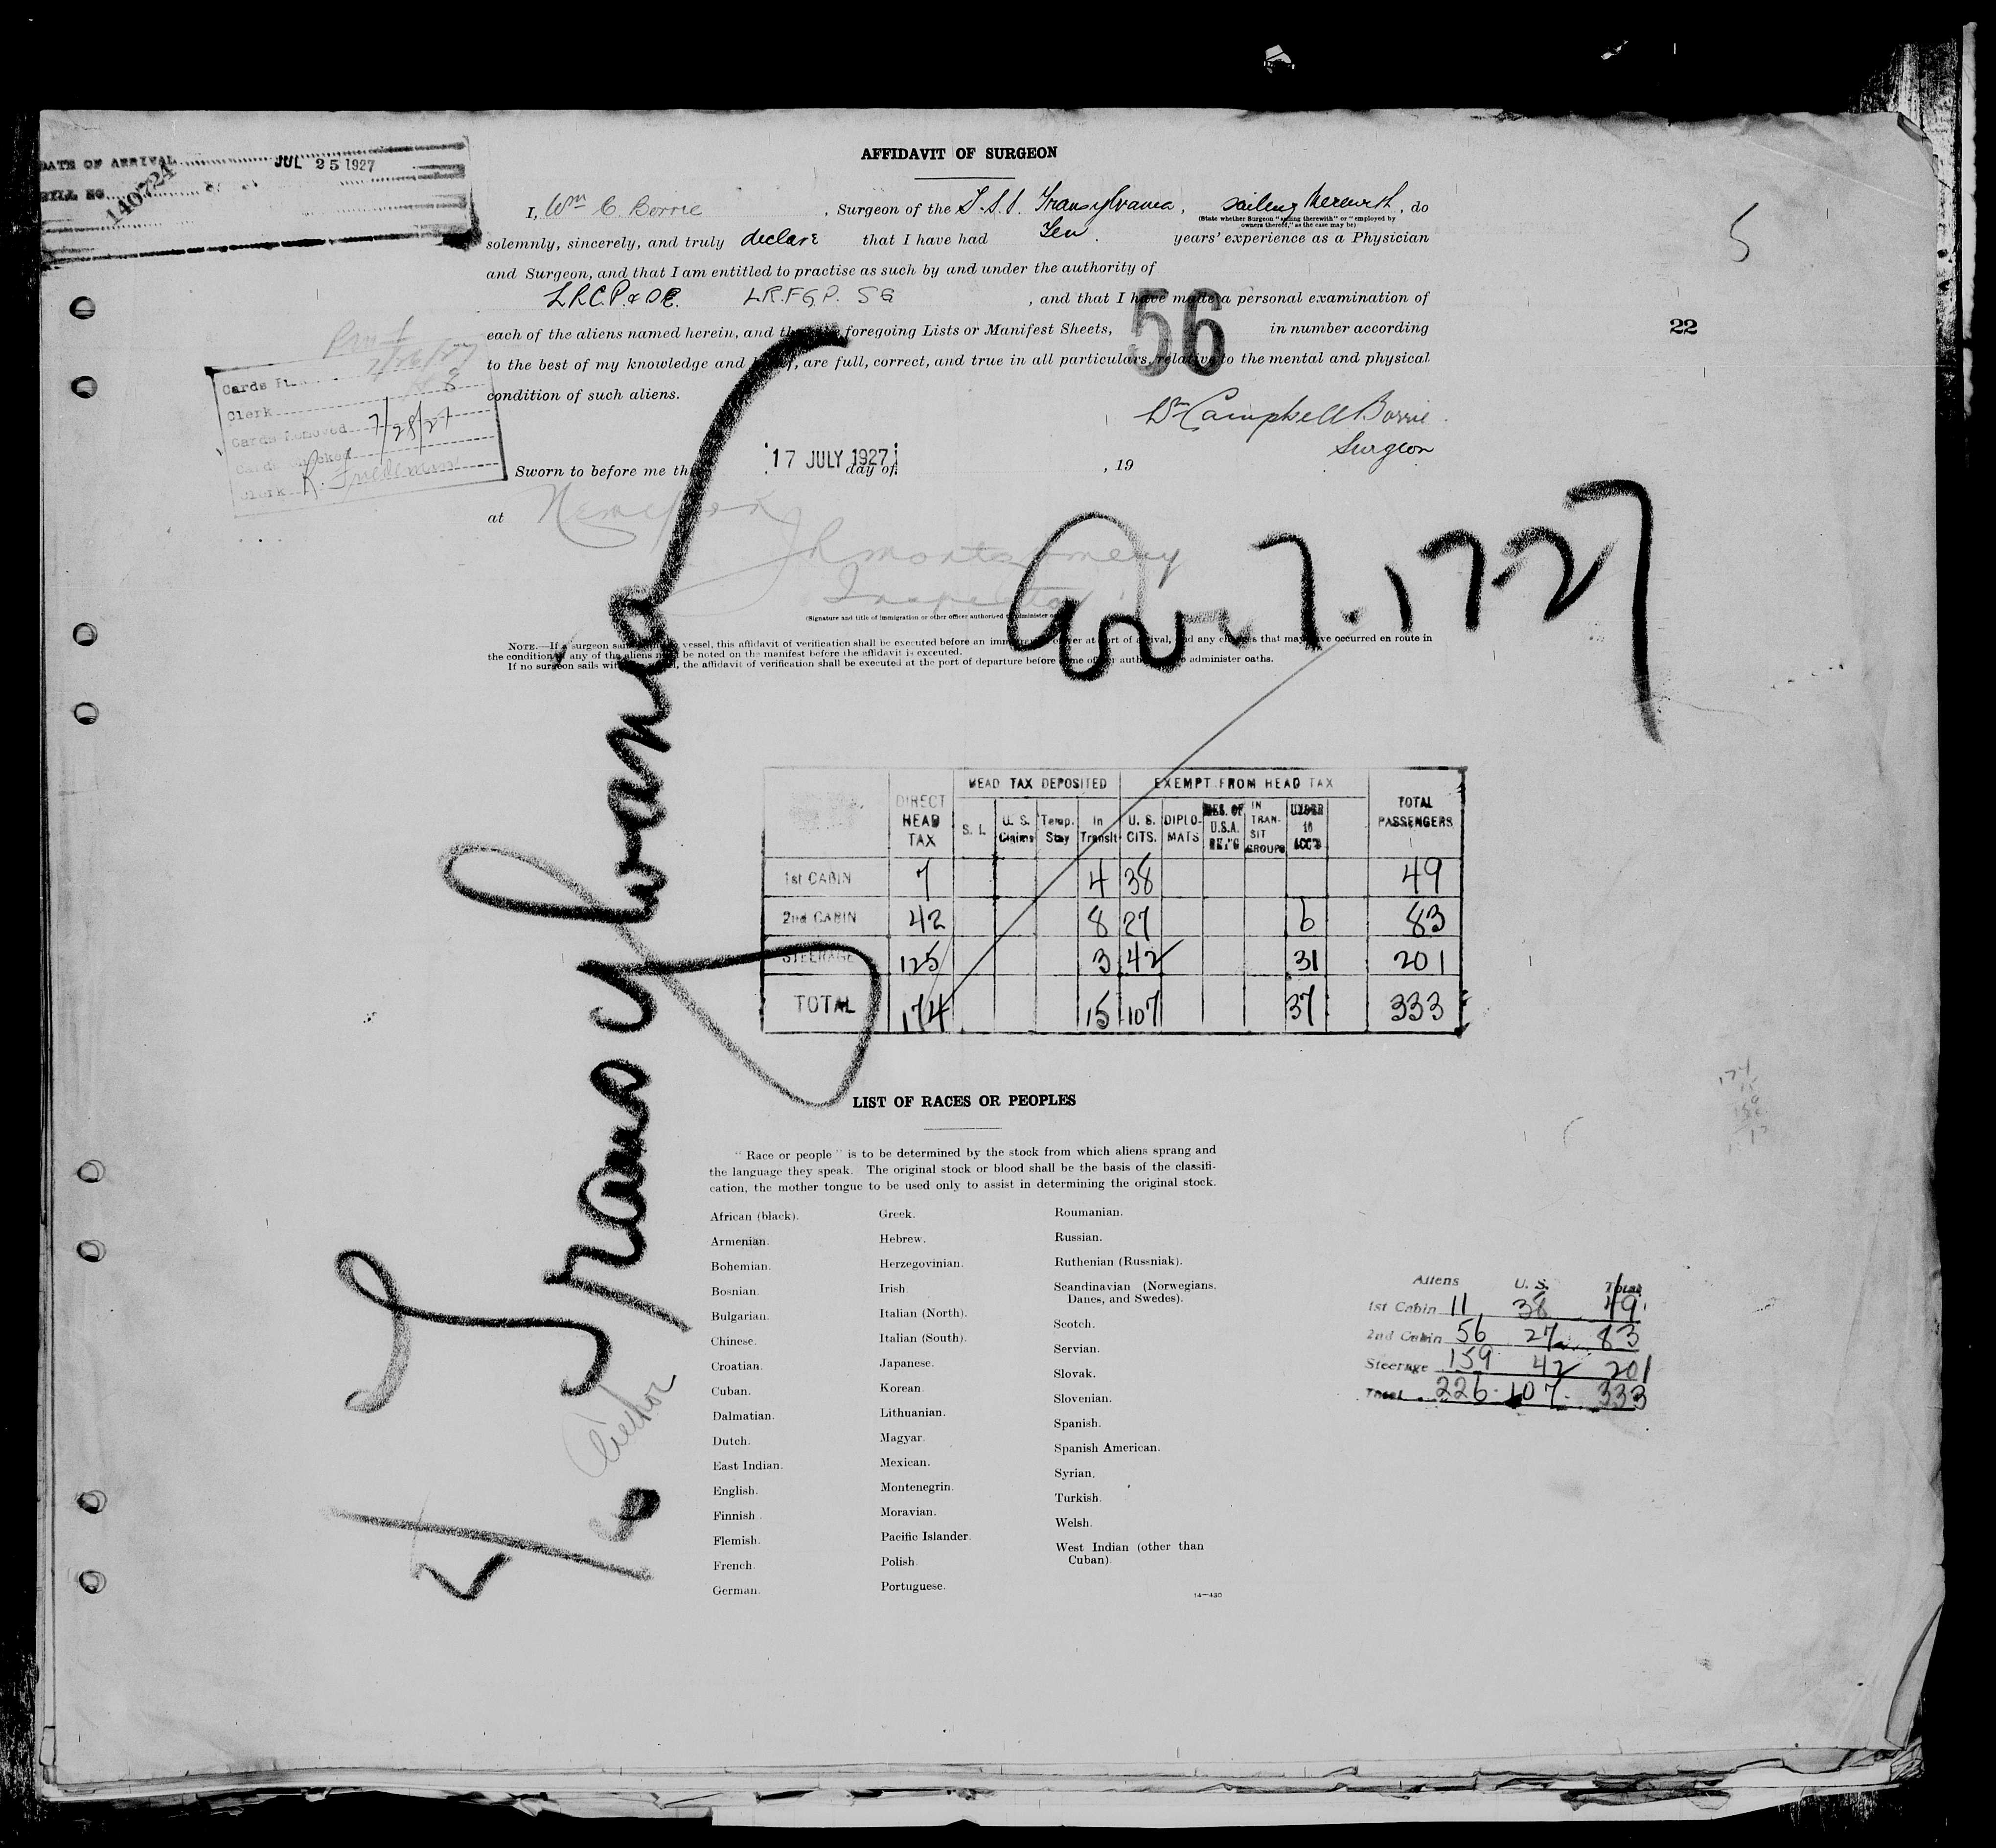 DATE OF ARRIVAL JUL 25 1927
140724
AFFIDAVIT OF SURGEON
I, Wm C Borrie, Surgeon of the T.S.S. Transylvania, sailing therewith, do
(State whether Surgeon "sailing therewith" or "employed by
owners thereof," as the case may be)
solemnly, sincerely, and truly declare that I have had Ten years' experience as a Physician
and Surgeon, and that I am entitled to practise as such by and under the authority of
L.R.C.P. & , and that I have made a personal examination of
each of the aliens named herein, and foregoing Lists or Manifest Sheets, 56 in number according
to the best of my knowledge and , are full, correct, and true in all particulars, relative to the mental and physical
condition of such aliens.
5
22
Cards
Clerk
Cards Removed 7/28/27
Clerk R. Friedman
Wm Campbell Borrie.
Surgeon
Sworn to before me 17 JULY 1927 day of , 19
at New York
JRMontgomery
Inspector
(Signature and title of immigration or other officer authorized to administer
Arr. 7.17-27
NOTE.—If a surgeon vessel, this affidavit of verification shall be executed before an at port of arrival, and any changes that may have occurred en route in
the condition of any of the aliens be noted on the manifest before the affidavit is executed.
If no surgeon sails , the affidavit of verification shall be executed at the port of departure before administer oaths.
Transylvania
Anchor
HEAD TAX DEPOSITED EXEMPT FROM HEAD TAX
DIRECT HEAD TAX S. I. U. S. Claims Temp. Stay In Transit U. S. CITS. DIPLO-MATS RES. OF U.S.A. RET'G IN TRAN-SIT GROUPS UNDER 16 ACC'D TOTAL PASSENGERS
1st CABIN 7 4 38 49
2nd CABIN 42 8 27 6 83
STEERAGE 125 3 42 31 201
TOTAL 174 15 107 37 333
LIST OF RACES OR PEOPLES
"Race or people" is to be determined by the stock from which aliens sprang and
the language they speak. The original stock or blood shall be the basis of the classifi-
cation, the mother tongue to be used only to assist in determining the original stock.
African (black).
Armenian.
Bohemian.
Bosnian.
Bulgarian.
Chinese.
Croatian.
Cuban.
Dalmatian.
Dutch.
East Indian.
English.
Finnish.
Flemish.
French.
German.
Greek.
Hebrew.
Herzegovinian.
Irish.
Italian (North).
Italian (South).
Japanese.
Korean.
Lithuanian.
Magyar.
Mexican.
Montenegrin.
Moravian.
Pacific Islander.
Polish.
Portuguese.
Roumanian.
Russian.
Ruthenian (Russniak).
Scandinavian (Norwegians,
Danes, and Swedes).
Scotch.
Servian.
Slovak.
Slovenian.
Spanish.
Spanish American.
Syrian.
Turkish.
Welsh.
West Indian (other than
Cuban).
14—430
Aliens U. S. Total
1st Cabin 11 38 49
2nd Cabin 56 27 83
Steerage 159 42 201
Total 226 107 333